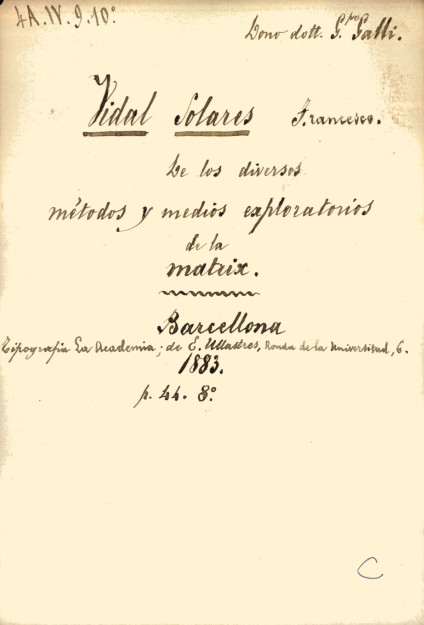 4A.IV.9.10°
Dono dott. G.ppe Galli.
Vidal Solares Francesco.
De los diversos
métodos y medios exploratorios
de la
matrix.
Barcellona
Tipografia La Academia; de E. Ullastres, Ronda de la Universitad, 6.
1883.
p. 44. 8°
C